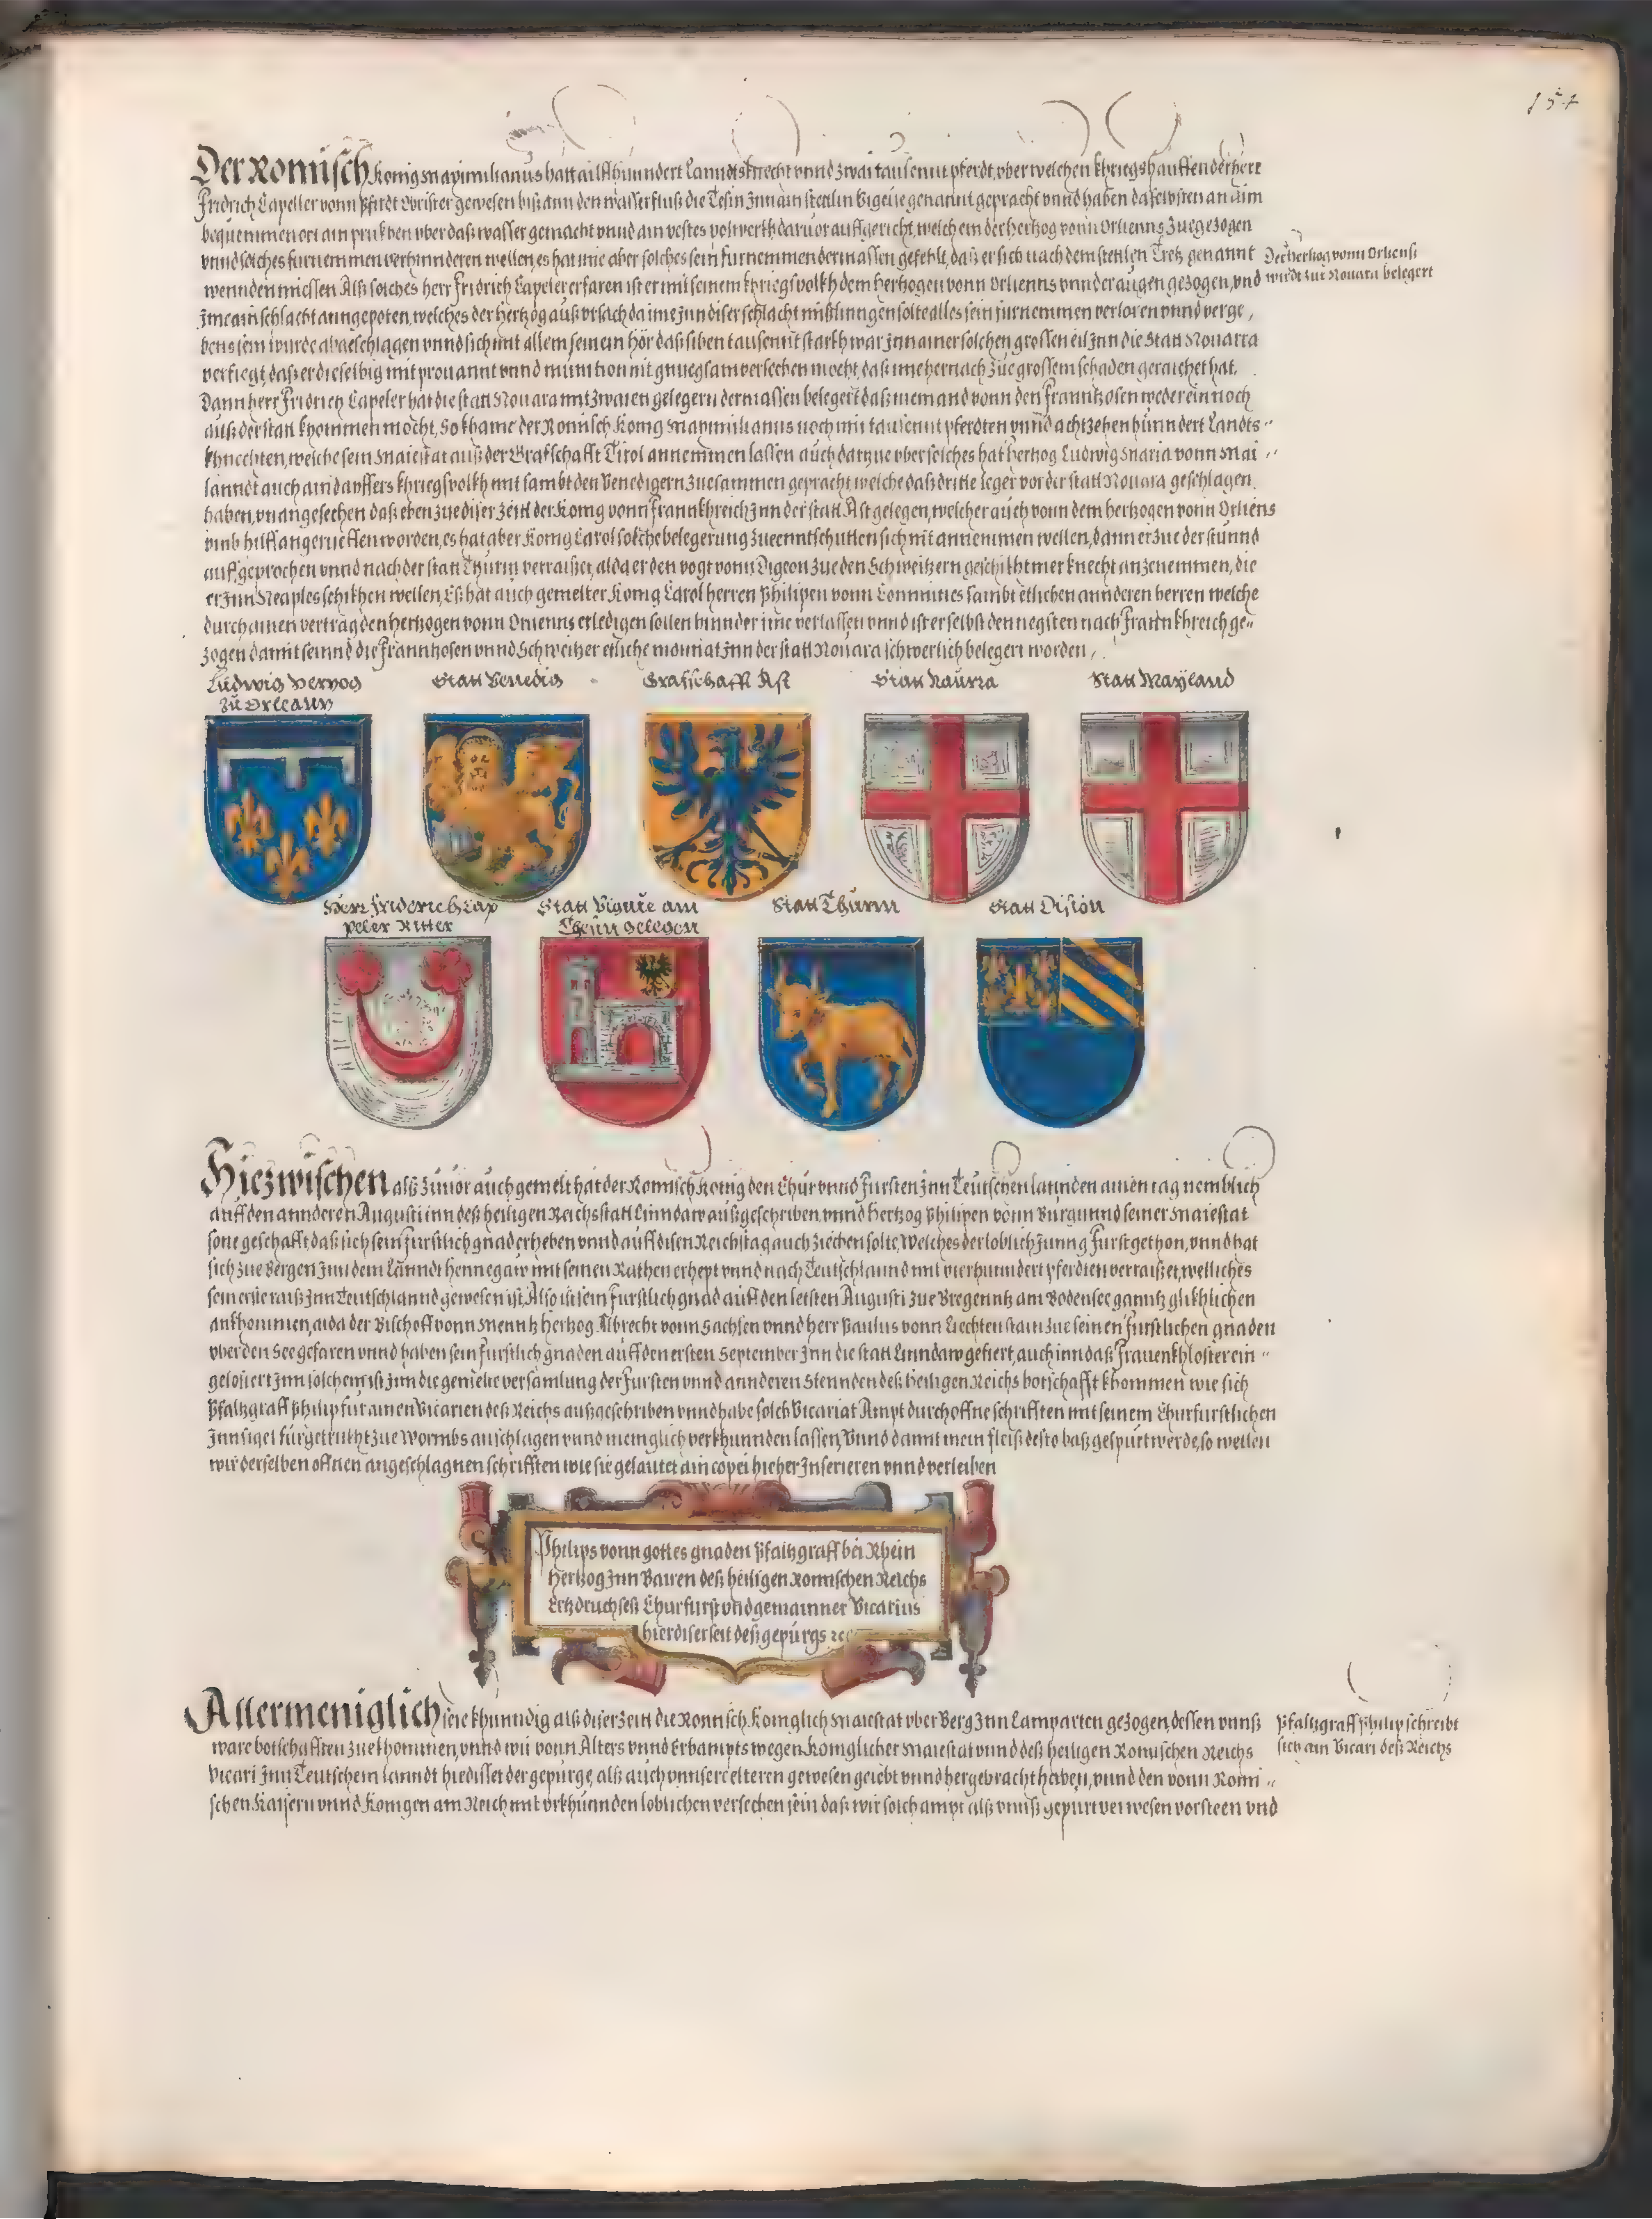 Der Romisch Konig Maximilianus hatt ailffhunndert Lanndtsknecht vnnd zwai tausennt pferdt, vber welchen khriegshauffen der herr
Fridrich Capeller vonn Pfirdt Obrister gewesen biß ann den wasserfluß die Tesin Inn ain stetlin Vigeue genannt gepracht vnnd haben daselbsten an aim
bequemmen ort ain prukhen vber daß wasser gemacht vnnd ain vestes polwerkh daruor auffgericht, welchem der hertzog vonn Orlienns zuegezogen
vnnd solches furnemmen verhinnderen wellen, es hat ime aber solches sein furnemmen dermassen gefehlt, daß er sich nach dem stetlen Tretz genannt
Der hertzog vonn Orliens
wirdt zur Nouara belegert
wennden miessen Alß solches herr Fridrich Capeler erfaren ist er mit seinem khriegsvolkh dem hertzogen vonn Orlienns vnnder augen gezogen, vnd
Ime ain schlacht angepoten, welches der hertzog auß vrsach da ime Inn diser schlacht mißlinngen solte alles sein furnemmen verloren vnnd verge,
bens sein wurde abgeschlagen vnnd sich mit allem seinem hör das siben tausennt starkh war Inn ainer solchen grossen eil Inn die Statt Nouarra
verfiegt, daß er dieselbig mit prouannt vnnd munition nit gnuegsam versechen mocht, daß ime hernach zue grossem schaden geraichet hat.
Dann herr Fridrich Capeler hat die statt Nouara mit zwaien gelegern dermassen belegert daß niemand vonn den Frantzosen weder ein noch
auß der statt khommen mocht, So khame der Romisch Konig Maximilianus noch mit tausennt pferdten vnnd achtzehen hunndert Landts-
khnechten, welche sein Maiestat auß der Grafschafft Tirol annemmen lassen auch dartzue vber solches hat hertzog Ludwig Maria vonn Mai-
lanndt auch ain dapffers khriegsvolkh mit sambt den Venedigern zuesammen gepracht welche daß dritte leger vor der statt Nouara geschlagen
haben, vnangesechen daß eben zue diser zeitt der Konig vonn Frannkhreich Inn der statt Ast gelegen, welcher auch vonn dem hertzogen vonn Orliens
vmb hilff angerueffen worden, es hat aber Konig Carol solche belegerung zue enntschutten sich nit annemmen wellen, dann er zue der stunnd
auf geprochen vnnd nach der statt Thurin verraißet, alda er den vogt vonn Digeon zue den Schweitzern geschikht mer knecht anzenemmen, die
er Inn Neaples schikhen wellen, Eß hat auch gemelter Konig Carol herren Philipen vonn Comminies sambt etlichen annderen herren welche
durch ainen vertrag den hertzogen vonn Orlienns erledigen sollen hinnder ime verlassen vnnd ist er selbst den negsten nach Frannkhreich ge-
zogen damit seinnd die Franntzosen vnnd Schweitzer etliche monnat Inn der statt Nouara schwerlich belegert worden,
Ludwig Hertzog
zu Orleanns
Statt Venedig
Grafschafft Ast
Statt Naurra
Statt Mayland
Herr Friderich Cap
peler Ritter
Statt Vigeue am
Thesin gelegen
Statt Thurin
Statt Dision
Hiezwischen alß zuuor auch gemelt hat der Romisch Konig den Chur vnnd Fursten Inn Teutschen lannden ainen tag nemblich
auff den annderen Augusti inn deß heiligen Reichs statt Linndaw außgeschriben vnnd Hertzog Philipen vonn Burgunnd seiner Maiestat
sone geschafft daß sich sein furstlich gnad erheben vnnd auff disen Reichstag auch ziechen solte, Welches der loblich Junng Furst gethon, vnnd hat
sich zue Bergen Inn dem Lanndt Hennegaw mit seinen Rathen erhept vnnd nach Teutschlannd mit vierhunndert pferdten verraiset, welliches
sein erste raiß Inn Teutschlannd gewesen ist, Also ist sein furstlich gnad auff den letsten Augusti zue Bregenntz am Bodensee ganntz glikhlichen
ankhommen, alda der Bischoff vonn Menntz Hertzog Albrecht vonn Sachsen vnnd herr Paulus vonn Liechtenstain zue seinen furstlichen gnaden
vber den See gefaren vnnd haben sein furstlich gnaden auff den ersten September Inn die statt Linndaw gefiert, auch inn daß Frauenkhloster ein-
gelosiert Inn solchem ist Inn die gemelte versamlung der Fursten vnnd annderen Stennden deß heiligen Reichs botschafft khommen wie sich
Pfaltzgraff Philip fur ainen Vicarien deß Reichs außgeschriben vnnd habe solch Vicariat Ampt durch offne schrifften mit seinem Churfurstlichen
Innsigel furgetrukht zue Wormbs anschlagen vnnd meniglich verkhunnden lassen, Vnnd damit mein fleiß desto baß gespurt werde, so wellen
wir derselben offnen angeschlagnen schrifften wie sie gelautet ain copei hieher Inserieren vnnd verleiben
Philips vonn gottes gnaden Pfaltzgraff bei Rhein
Hertzog Inn Bairen deß heiligen Romischen Reichs
Ertzdruchseß Churfurst vnd gemainner Vicarius
hierdiserseit deß gepurgs ꝛc
Allermeniglich seie khunndig alß diser zeitt die Romisch Koniglich Maiestat vber Berg Inn Lamparten gezogen, dessen vnnß
Pfaltzgraff Philip schreibt
sich ain Vicari deß Reichs
ware botschafften zuekhommen, vnnd wir vonn Alters vnnd Erbampts wegen Koniglicher Maiestat vnnd deß heiligen Romischen Reichs
Vicari Inn Teutschem lanndt hiedisset der gepurge, alß auch vnnsere elteren gewesen geiebt vnnd hergebracht haben, vnnd den vonn Romi-
schen Kaisern vnnd Konigen am Reich mit vrkhunnden loblichen versechen sein daß wir solch ampt alß vnnß gepurt verwesen vorsteen vnd